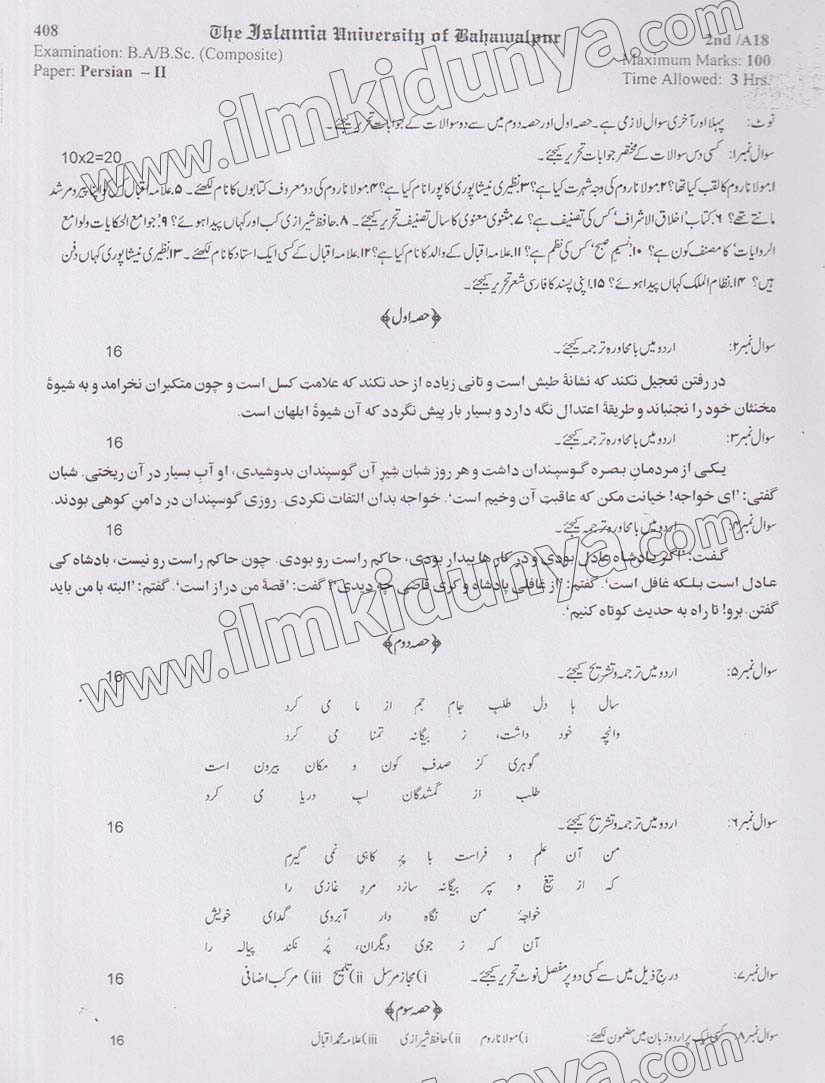 408
The Islamia University of Bahawalpur
2nd /A18
Examination: B.A/B.Sc. (Composite)
Maximum Marks: 100
Paper: Persian – II
Time Allowed: 3 Hrs.
نوٹ: پہلا اور آخری سوال لازمی ہے۔ حصہ اول اور حصہ دوم میں سے دو سوالات کے جوابات تحریر کیجئے۔
سوال نمبر۱: کسی دس سوالات کے مختصر جوابات تحریر کیجئے۔ 10x2=20
۱۔مولانا روم کا لقب کیا تھا؟ ۲۔مولانا روم کی وجہ شہرت کیا ہے؟ ۳۔نظیری نیشاپوری کا پورا نام کیا ہے؟ ۴۔مولانا روم کی دو معروف کتابوں کا نام لکھئے۔ ۵۔علامہ اقبال کس کو اپنا پیر و مرشد
مانتے تھے؟ ۶۔ کتاب 'اخلاق الاشراف' کس کی تصنیف ہے؟ ۷۔مثنوی معنوی کا سال تصنیف تحریر کیجئے۔ ۸۔حافظ شیرازی کب اور کہاں پیدا ہوئے؟ ۹۔'جوامع الحکایات و لوامع
الروایات' کا مصنف کون ہے؟ ۱۰۔'نسیم صبح' کس کی نظم ہے؟ ۱۱۔علامہ اقبال کے والد کا نام کیا ہے؟ ۱۲۔علامہ اقبال کے کسی ایک استاد کا نام لکھئے۔ ۱۳۔نظیری نیشاپوری کہاں دفن
ہیں؟ ۱۴۔نظام الملک کہاں پیدا ہوئے؟ ۱۵۔اپنی پسند کا فارسی شعر تحریر کیجئے۔
﴿حصہ اول﴾
سوال نمبر۲: اردو میں بامحاورہ ترجمہ کیجئے۔ 16
در رفتن تعجیل نکند که نشانۂ طیش است و تانی زیاده از حد نکند که علامتِ کسل است و چون متکبران نخرامد و به شیوۂ
مخنثان خود را نجنباند و طریقۂ اعتدال نگه دارد و بسیار بار پیش نگردد که آن شیوۂ ابلهان است.
سوال نمبر۳: اردو میں بامحاورہ ترجمہ کیجئے۔ 16
یکی از مردمانِ بصره گوسپندان داشت و هر روز شبان شیرِ آن گوسپندان بدوشیدی، او آبِ بسیار در آن ریختی. شبان
گفتی: 'ای خواجه! خیانت مکن که عاقبتِ آن وخیم است'. خواجه بدان التفات نکردی. روزی گوسپندان در دامنِ کوهی بودند.
سوال نمبر۴: اردو میں بامحاورہ ترجمہ کیجئے۔ 16
گفت: 'اگر پادشاه عادل بودی و در کار ها بیدار بودی، حاکم راست رو بودی. چون حاکم راست رو نیست، بادشاه کی
عادل است بلکه غافل است'. گفتم: 'از غافلی پادشاه و کژی قاضی چه دیدی'؟ گفت: 'قصۂ من دراز است'. گفتم: 'البته با من باید
گفتن. برو! تا راه به حدیث کوتاه کنیم'.
﴿حصہ دوم﴾
سوال نمبر۵: اردو میں ترجمہ و تشریح کیجئے۔ 16
سال ہا دل طلب جام جم از ما می کرد
وانچہ خود داشت، ز بیگانہ تمنا می کرد
گوہری کز صدفِ کون و مکان بیرون است
طلب از گمشدگان لب دریا می کرد
سوال نمبر۶: اردو میں ترجمہ و تشریح کیجئے۔ 16
من آن علم و فراست با پرِ کاہی نمی گیرم
کہ از تیغ و سپر بیگانہ سازد مردِ غازی را
خواجۂ من نگاہ دار آبروی گدای خویش
آن کہ ز جوی دیگران، پُر نکند پیالہ را
سوال نمبر۷: درج ذیل میں سے کسی دو پر مفصل نوٹ تحریر کیجئے۔ i) مجاز مرسل ii) تلمیح iii) مرکب اضافی 16
﴿حصہ سوم﴾
سوال نمبر۸: کسی ایک پر اردو زبان میں مضمون لکھئے: i) مولانا روم ii) حافظ شیرازی iii) علامہ محمد اقبال 16
www.ilmkidunya.com
www.ilmkidunya.com
www.ilmkidunya.com